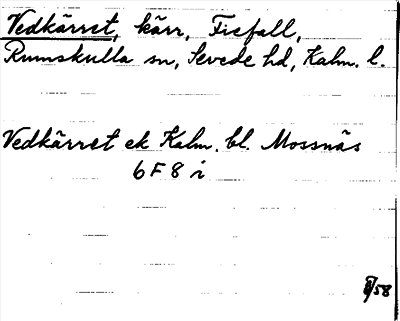 Vedkärret, kärr, Fisfall,
Rumskulla sn, Sevede hd, Kalm. l.
Vedkärret ek Kalm. bl. Mossnäs
6 F 8 i
/58